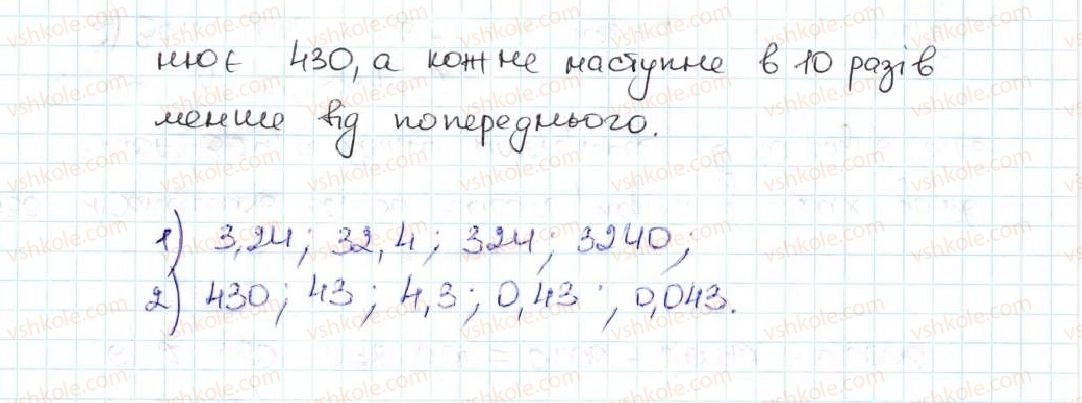 нює 430, а кожне наступне в 10 разів
менше від попереднього.
1) 3,24; 32,4; 324; 3240;
2) 430; 43; 4,3; 0,43; 0,043.